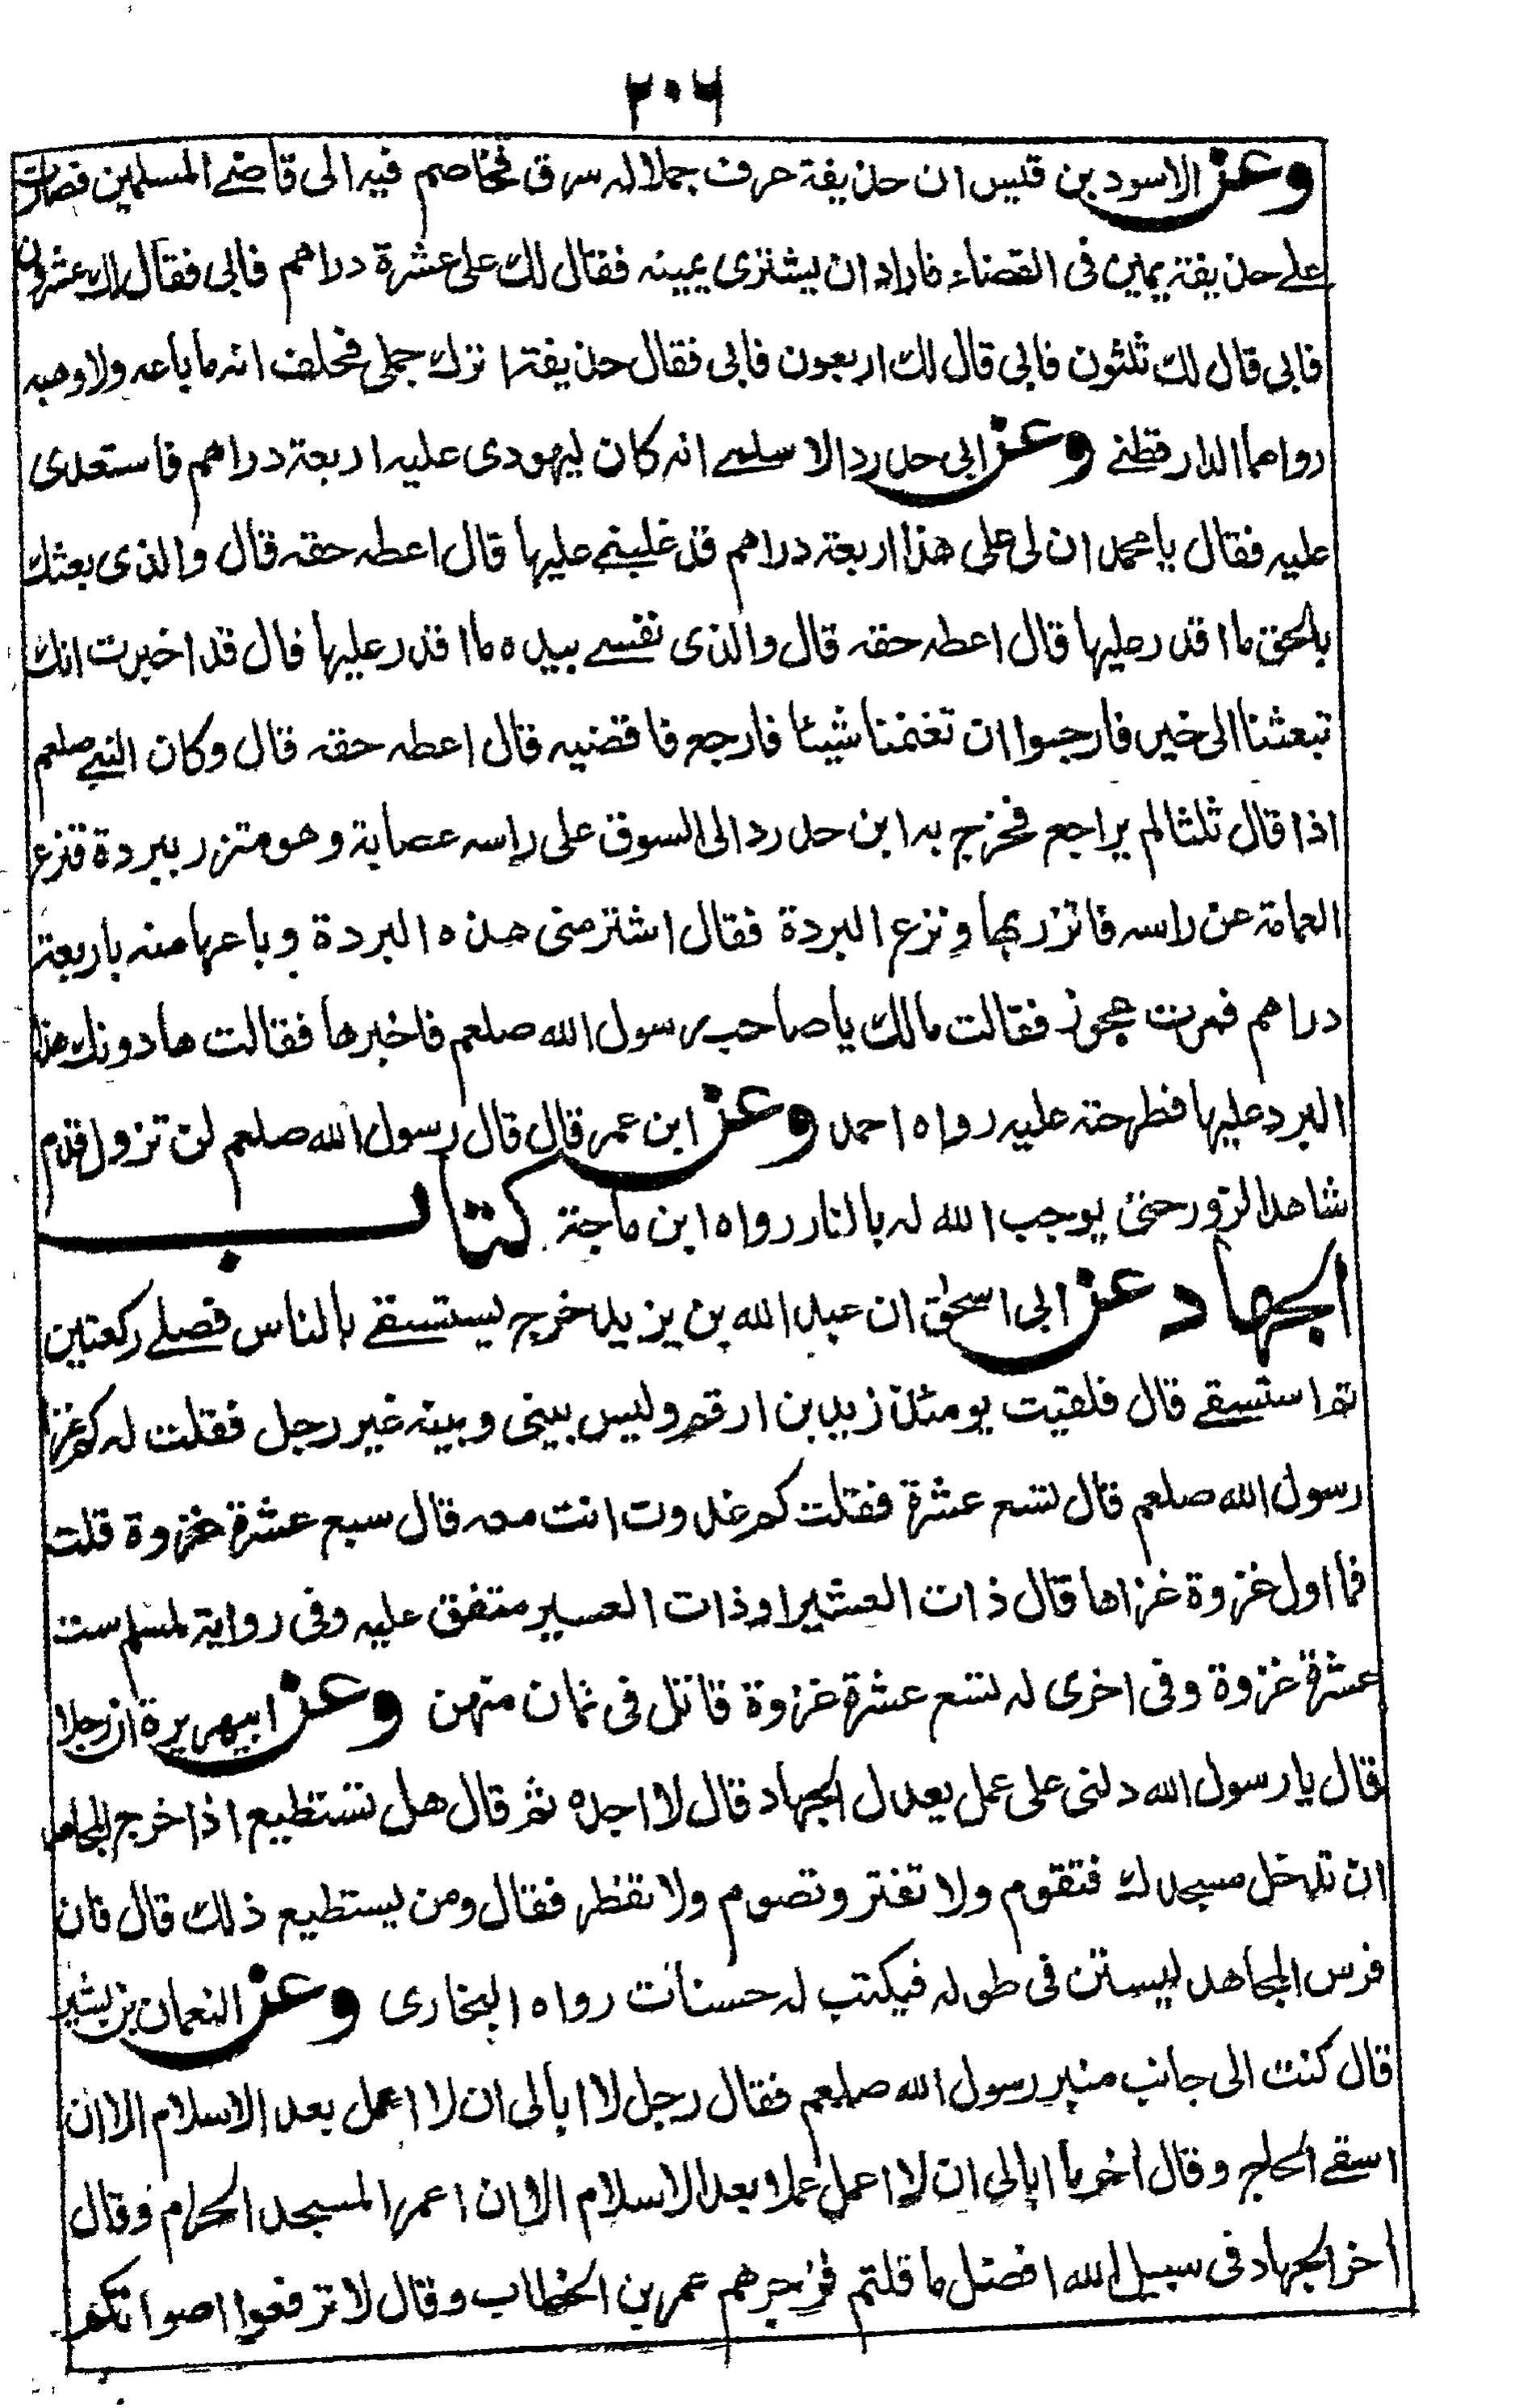 ٢٠٦
وعن الاسود بن قيس ان حذيفة عرف جملا له سرق فخاصم فيه الى قاضي المسلمين فصارت
على حذيفة يمين في القضاء فاراد ان يشترى يمينه فقال لك على عشرة دراهم فابى فقال لك عشرون
فابى قال لك ثلثون فابى قال لك اربعون فابى فقال حذيفة ا نزك جملى فحلف انه ما باعه ولا وهبه
رواهما الدارقطنے وعن ابى حدرد الاسلمے انه كان ليهودى عليه اربعة دراهم فاستعدى
عليه فقال يا محمد ان لى على هذا اربعة دراهم قد غلبنے عليها قال اعطه حقه قال والذى بعثك
بالحق ما اقدر عليها قال اعطه حقه قال والذى نفسے بيده ما اقدر عليها قال قد اخبرت انك
تبعثنا الى خيبر فارجوا ان تغنمنا شيئا فارجع فاقضيه قال اعطه حقه قال وكان النبے صلعم
اذا قال ثلثا لم يراجع فخرج به ابن حدرد الى السوق على راسه عصابة وهو متزر ببردة فنزع
العمامة عن راسه فاتزر بها ونزع البردة فقال اشتر منى هذه البردة وباعها منه باربعة
دراهم فمرت عجوز فقالت مالك يا صاحب رسول الله صلعم فاخبرها فقالت ها دونك هذا
البرد عليها فطرحته عليه رواه احمد وعن ابن عمر قال قال رسول الله صلعم لن تزول قدم
شاهد الزور حتى يوجب الله له بالنار رواه ابن ماجة كتاب
الجهاد عن ابى اسحق ان عبد الله بن يزيد خرج يستسقے بالناس فصلے ركعتين
ثم استسقے قال فلقيت يومئذ زيد بن ارقم وليس بينى وبينه غير رجل فقلت له كم غزا
رسول الله صلعم قال تسع عشرة فقلت كم غدوت انت معه قال سبع عشرة غزوة قلت
فما اول غزوة غزاها قال ذات العشير او ذات العسير متفق عليه وفى رواية لمسلم ست
عشرة غزوة وفى اخرى له تسع عشرة غزوة قاتل فى ثمان منهن وعن ابيهريرة ان رجلا
قال يا رسول الله دلنى على عمل يعدل الجهاد قال لا اجده ثم قال هل تستطيع اذا خرج المجاهد
ان تدخل مسجدك فتقوم ولا تفتر وتصوم ولا تفطر فقال ومن يستطيع ذلك قال فان
فرس المجاهد ليستن فى طوله فيكتب له حسنات رواه البخارى وعن النعمان بن بشير
قال كنت الى جانب منبر رسول الله صلعم فقال رجل لا ابالى ان لا اعمل بعد الاسلام الا ان
اسقے الحاج وقال اخر ما ابالى ان لا اعمل عملا بعد الاسلام الا ان اعمر المسجد الحرام وقال
اخر الجهاد فى سبيل الله افضل ما قلتم فزجرهم عمر بن الخطاب وقال لا ترفعوا اصواتكم